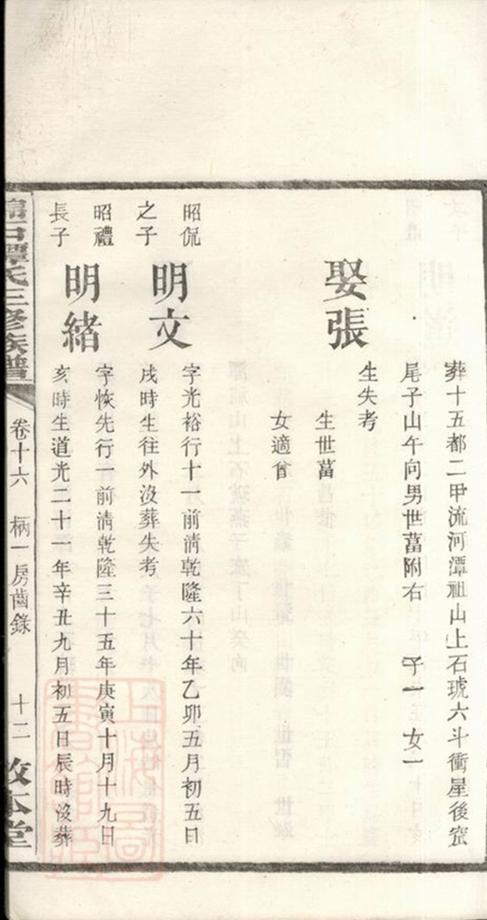 葬十五都二甲流河潭祖山上石琥六斗衝星後窊
尾子山午向男世葍附右 子一 女一
娶張
生失考
生世葍
女適昝
昭侃
之子
明文
字光裕行十一前清乾隆六十年乙卯五月初五日
戌時生往外沒葬失考
昭禮
長子
明緒
字恢先行一前清乾隆三十五年庚寅十月十九日
亥時生道光二十一年辛丑九月初五日辰時沒葬
石譚氏三修族譜
卷十六 柄一房齒錄
十二
敦本堂